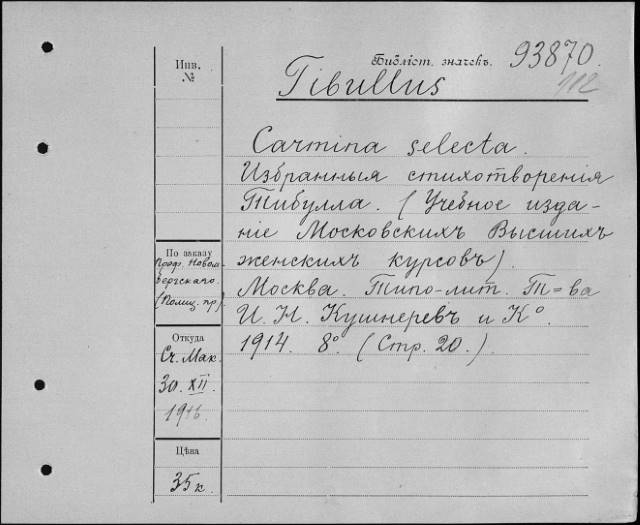 Инв.
№
Библіот. значекъ.
93870.
112
Tibullus
Carmina selecta.
Избранныя стихотворенія
Тибулла. (Учебное изда-
ніе Московскихъ Высшихъ
женскихъ курсовъ).
Москва. Типо-лит. Т=ва
И. Н. Кушнеревъ и К°.
1914. 8° (Стр. 20.)
По заказу
Проф. Новом-
бергскаго.
(Полиц. пр.)
Откуда
Сч. Мак.
30. XII.
Цѣна
35 к.